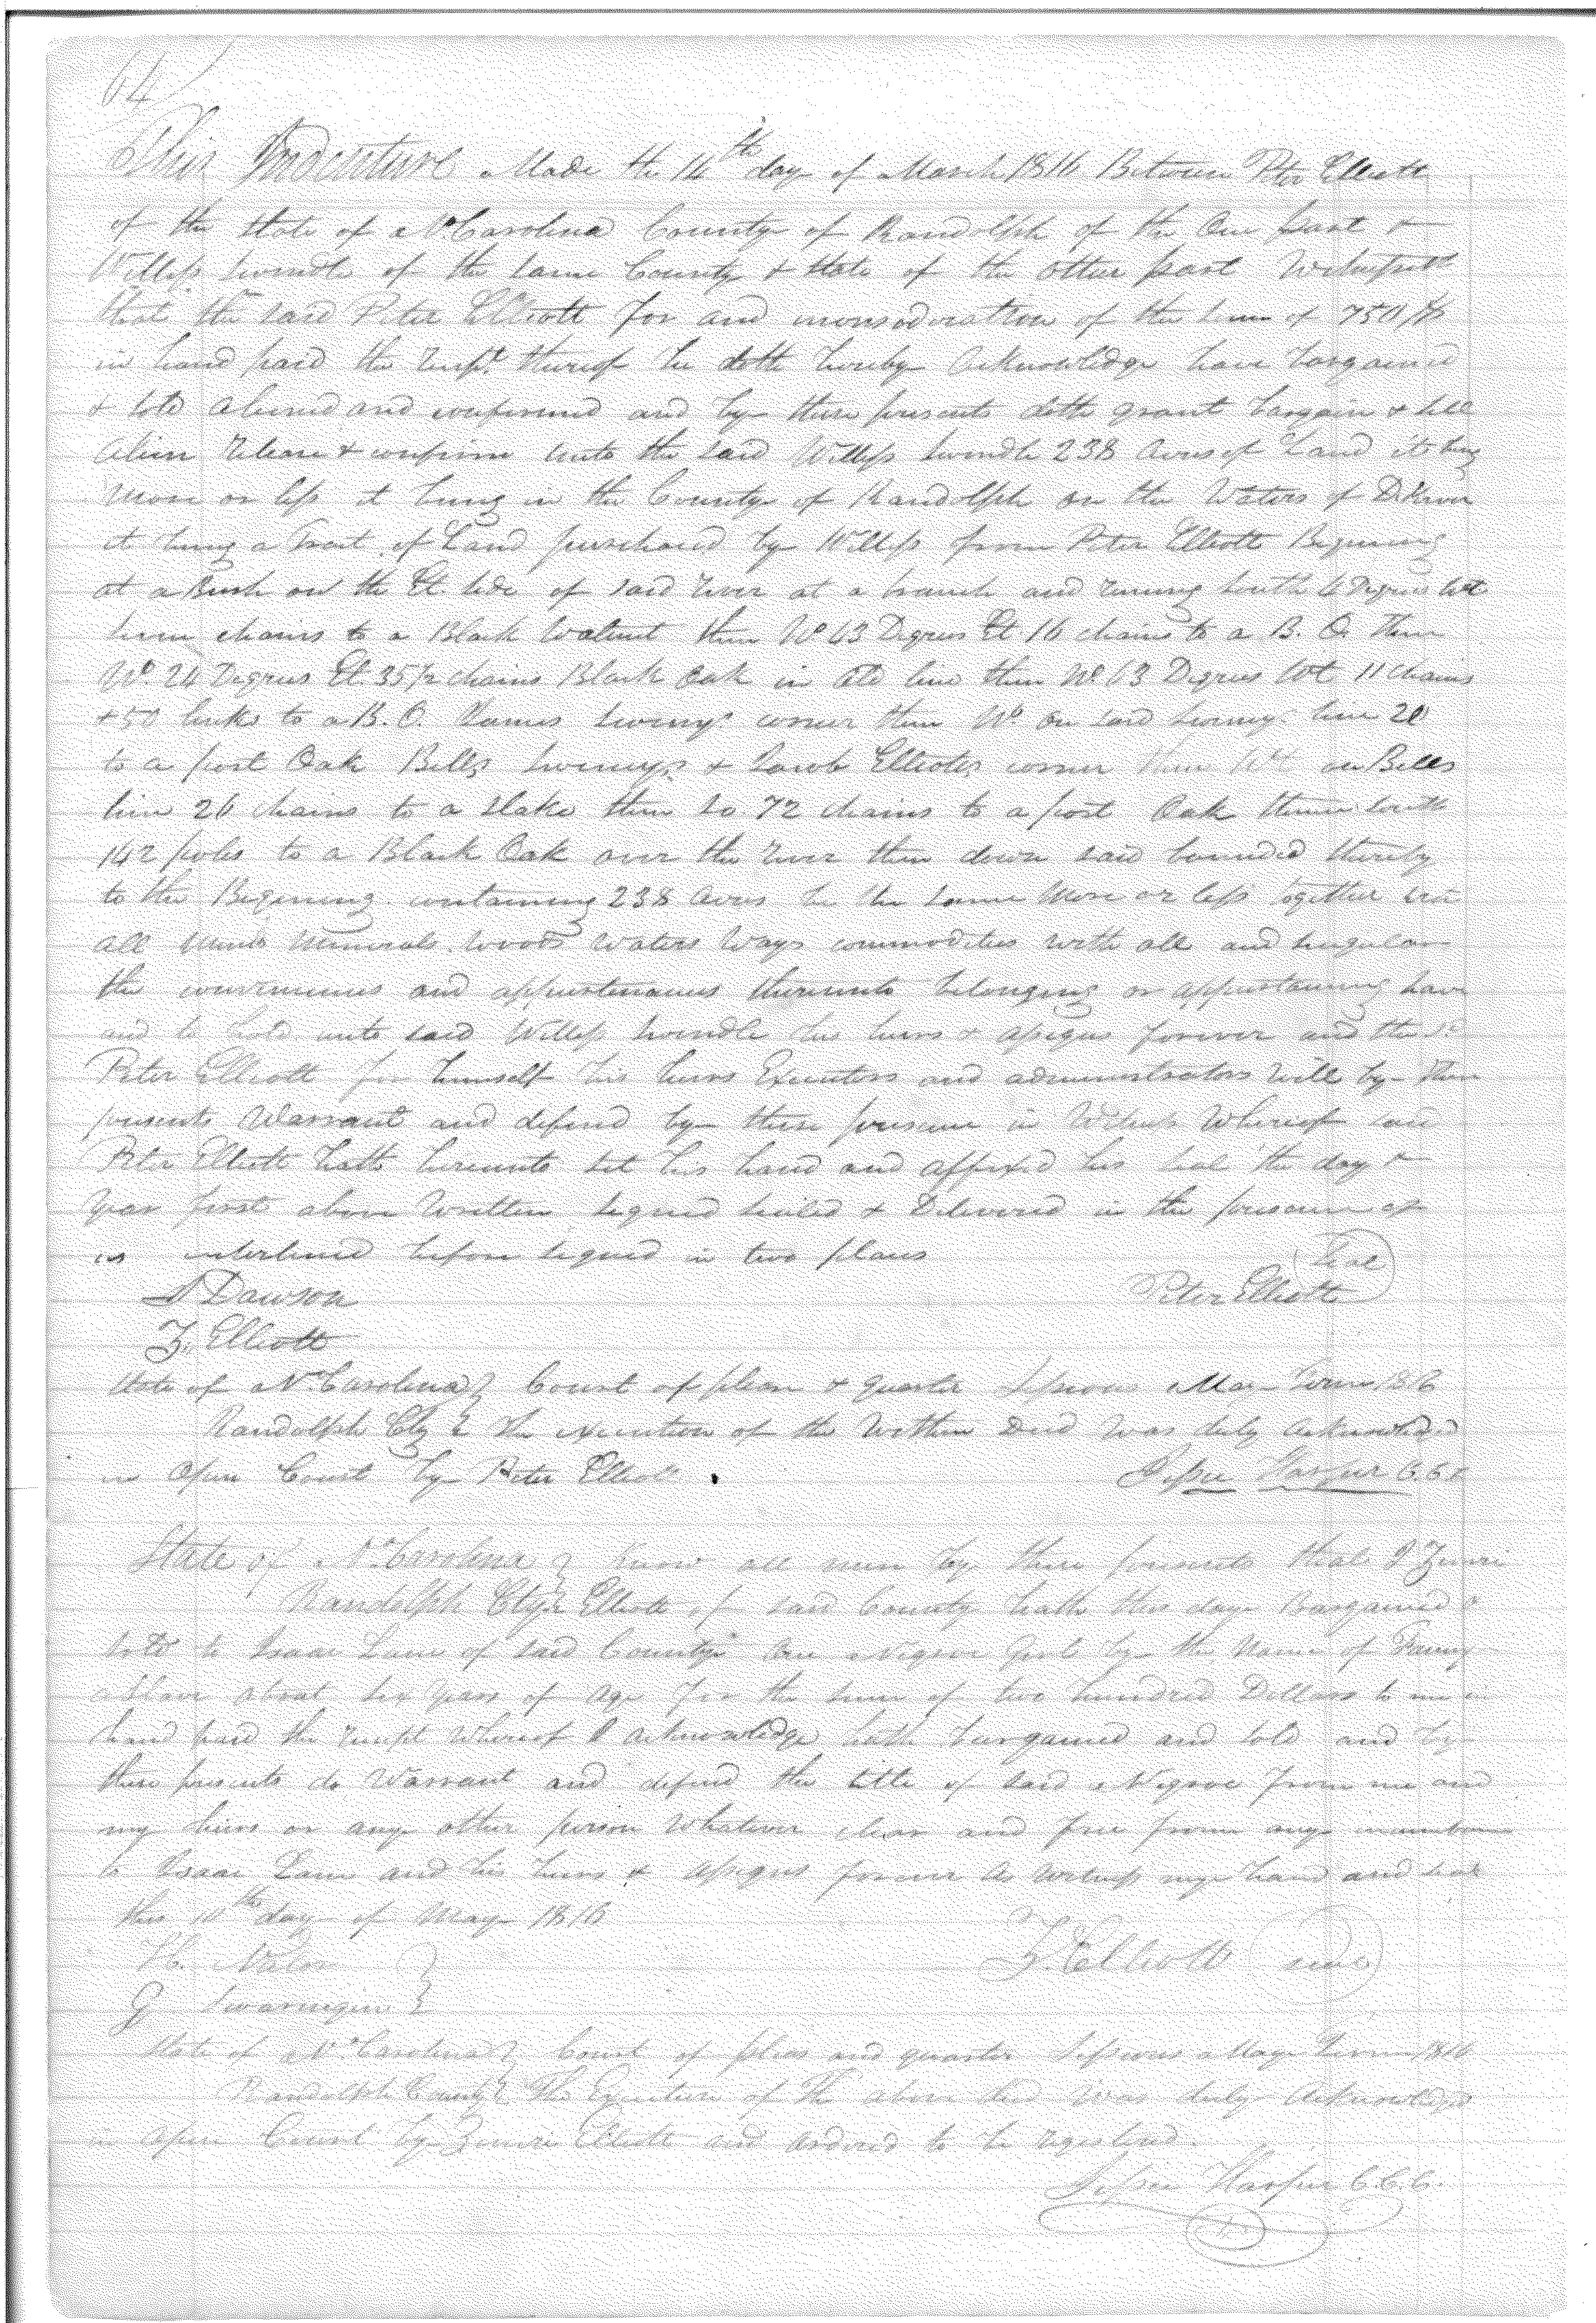 64
This Indenture Made the 14th day of March 1816 Between Peter Elliott
of the State of No. Carolina County of Randolph of the One part &
Willess Swindle of the same County & State of the other part Witnesseth
that the said Peter Elliott for and inconsideration of the sum of 750 $
in hand paid the recpt. thereof he doth hereby acknowledge have bargained
& sold aliened and confirmed and by these presents doth grant bargain & sell
alien release & confirm unto the said Willess Swindle 238 acres of Land it being
More or less it being in the County of Randolph on the Waters of D River
it being a Tract of Land purchased by Willess from Peter Elliott Begining
at a Bush on the Et side of said River at a branch and runing South 4 Degrees Wt
seven chains to a Black Walnut then No 63 Degrees Et 16 chains to a B. O. then
No. 24 Degrees Et 35½ chains Black Oak in old line then No 63 Degrees Wt 11 chains
& 50 links to a B. O. James Swenys corner then No on said Swenys line 20
to a post Oak Bells Swenys & Jacob Elliotts corner then Wt on Bells
line 26 chains to a stake then So 72 chains to a post Oak then South
142 poles to a Black Oak over the river then down said bounded thereby
to the Begining containing 238 acres be the same More or less together with
all Minerals Woods Waters Ways commodities with all and singular
the conveniences and appurtenances thereunto belonging or appertaining have
and to hold unto said Willess Swindle his heirs & assigns forever and the sd
Peter Elliott for himself his heirs Executors and administrators will by these
presents Warrant and defend by these presents in Witness Whereof said
Peter Elliott hath hereunto set his hand and affixed his seal the day &
year first above Written signed sealed & Delivered in the presence of
us interlined before signed in two places Seal
Dawson Peter Elliott
Z. Elliott
State of No. Carolina } Court of pleas & quarter Sessions May Term 1816
Randolph Cty } The execution of the Within Deed was duly Acknowledged
in Open Court by Peter Elliott. Jesse Harper C C C
State of No. Carolina } Know all men by these presents that I Zimri
Randolph Cty } Elliott of said County hath this day Bargained &
sold to Isaac Lane of said County One Negroe Girl by the Name of Fanny
a Slave about six years of age for the sum of two hundred Dollars to me in
hand paid the receipt whereof I acknowledge hath bargained and sold and by
these presents do Warrant and defend the title of said Negroe from me and
my heirs or any other person whatever clear and free from any
to Isaac Lane and his heirs & assigns forever As witness my hand and seal
this 10th day of May 1816
Z. Elliott seal
G Swaringen }
State of No. Carolina } Court of pleas and quarter Sessions May Term 1816
Randolph County } The Execution of the above deed was duly Acknowledged
in open Court by Zimri Elliott and ordered to be registered.
Jesse Harper C.C.C.